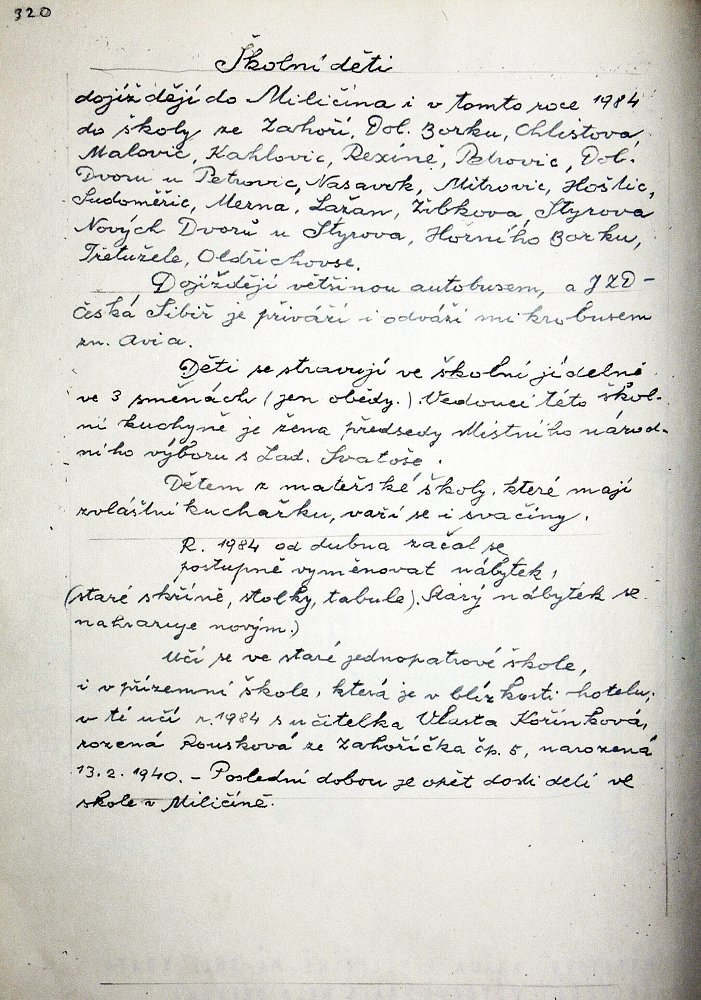 320
Školní děti
dojíždějí do Miličína i v tomto roce 1984
do školy ze Zahoří, Dol. Borku, Chlistova,
Malovic, Kahlovic, Rexíně, Petrovic, Dol.
Dvoru u Petrovic, Nasavrk, Mitrovic, Hoštic,
Sudoměřic, Mezna, Lažan, Žibkova, Styrova
Nových Dvorů u Styrova, Horního Borku,
Třetužele, Oldřichovse.
Dojíždějí většinou autobusem, a JZD -
Česká Sibiř je přiváží i odváží mikrobusem
zn. Avia.
Děti se stravují ve školní jídelně
ve 3 směnách (jen obědy.) Vedoucí této škol-
ní kuchyně je žena předsedy Místního národ-
ního výboru s Lad. Svatoše.
Dětem z mateřské školy, které mají
zvláštní kuchařku, vaří se i svačiny.
R. 1984 od dubna začal se
postupně vyměnovat nábytek,
(staré skříně, stolky, tabule). Starý nábytek se
nahrazuje novým.)
Učí se ve staré jednopatrové škole,
i v přízemní škole, která je v blízkosti hotelu;
v té učí r. 1984 s učitelka Vlasta Kořínková,
rozená Rousková ze Zahoříčka čp. 5, narozená
13.2. 1940. - Poslední dobou je opět dosti dětí ve
skole v Miličíně.